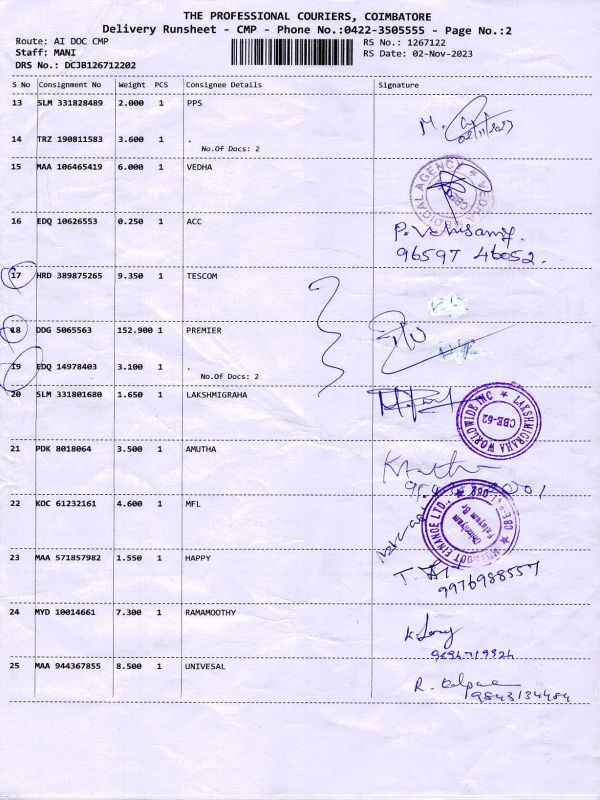 THE PROFESSIONAL COURIERS, COIMBATORE
Delivery Runsheet - CMP - Phone No.:0422-3505555 - Page No.:2
Route: AI DOC CMP RS No.: 1267122
Staff: MANI RS Date: 02-Nov-2023
DRS No.: DCJB126712202
S No Consignment No Weight PCS Consignee Details Signature
13 SLM 331828489 2.000 1 PPS
14 TRZ 190811583 3.600 1 .
No.Of Docs: 2
15 MAA 106465419 6.000 1 VEDHA
16 EDQ 10626553 0.250 1 ACC
96597 46052.
17 HRD 389875265 9.350 1 TESCOM
18 DDG 5065563 152.900 1 PREMIER
19 EDQ 14978403 3.100 1 .
No.Of Docs: 2
20 SLM 331801680 1.650 1 LAKSHMIGRAHA
LAKSHMIGRAHA WORLDWIDE INC
CBE-62
21 PDK 8018064 3.500 1 AMUTHA
22 KOC 61232161 4.600 1 MFL
23 MAA 571857982 1.550 1 HAPPY
9976988557
24 MYD 10014661 7.300 1 RAMAMOOTHY
25 MAA 944367855 8.500 1 UNIVESAL
9843134484